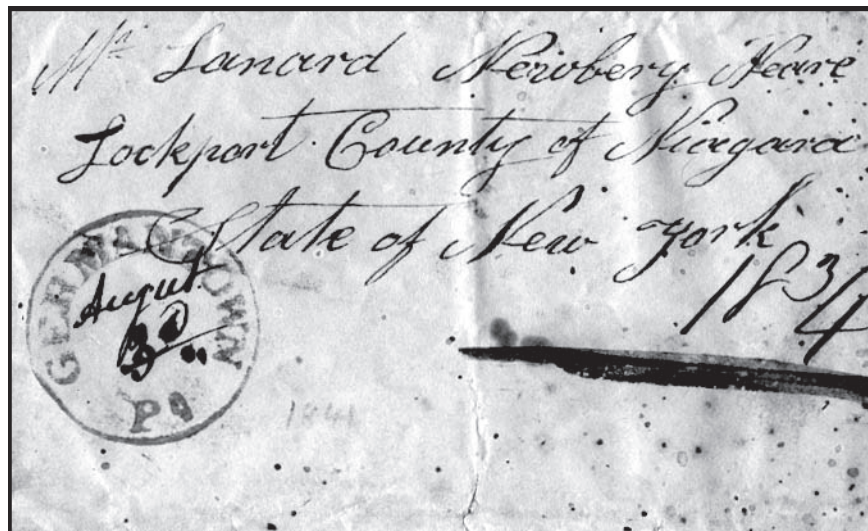 Mr Lanard Newbery Neare
Lockport County of Niagara
State of New York
18 3/4
GERMANTOWN
August
30
PA